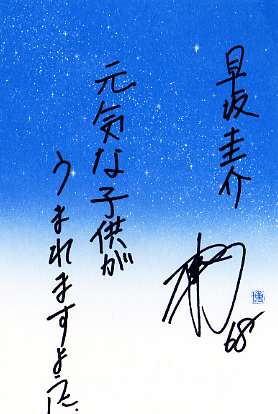 早坂圭介
元気な子供が
うまれますように
68